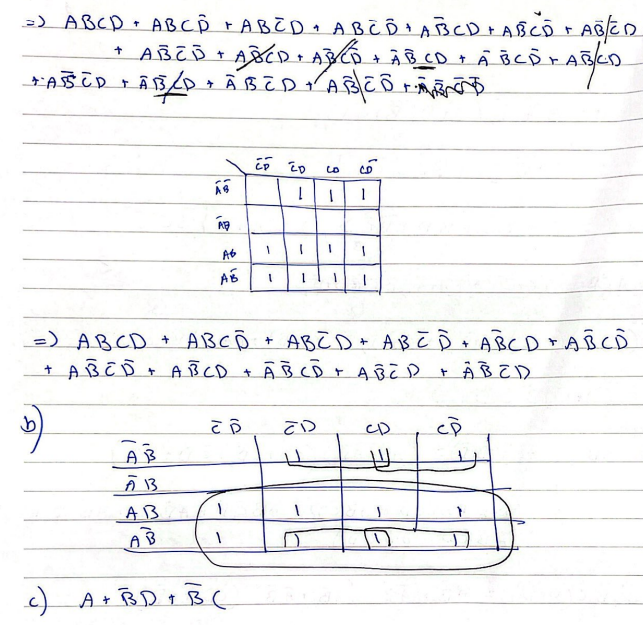 =) ABCD + ABCD̄ + ABC̄D + ABC̄D̄ + AB̄CD + AB̄CD̄ + AB̄C̄D
+ AB̄C̄D̄ + AB̄CD + AB̄CD̄ + ĀB̄CD + ĀB̄CD̄ + AB̄CD
+ AB̄C̄D + ĀB̄CD + ĀB̄C̄D + AB̄C̄D̄ +
C̄D̄ C̄D CD CD̄
ĀB̄ 1 1 1
ĀB
AB 1 1 1 1
AB̄ 1 1 1 1
=) ABCD + ABCD̄ + ABC̄D + ABC̄D̄ + AB̄CD + AB̄CD̄
+ AB̄C̄D̄ + AB̄CD + ĀB̄CD̄ + AB̄C̄D + ĀB̄C̄D
b) C̄D̄ C̄D CD CD̄
ĀB̄ 1 1 1
ĀB
AB 1 1 1 1
AB̄ 1 1 1 1
c) A + B̄D + B̄C